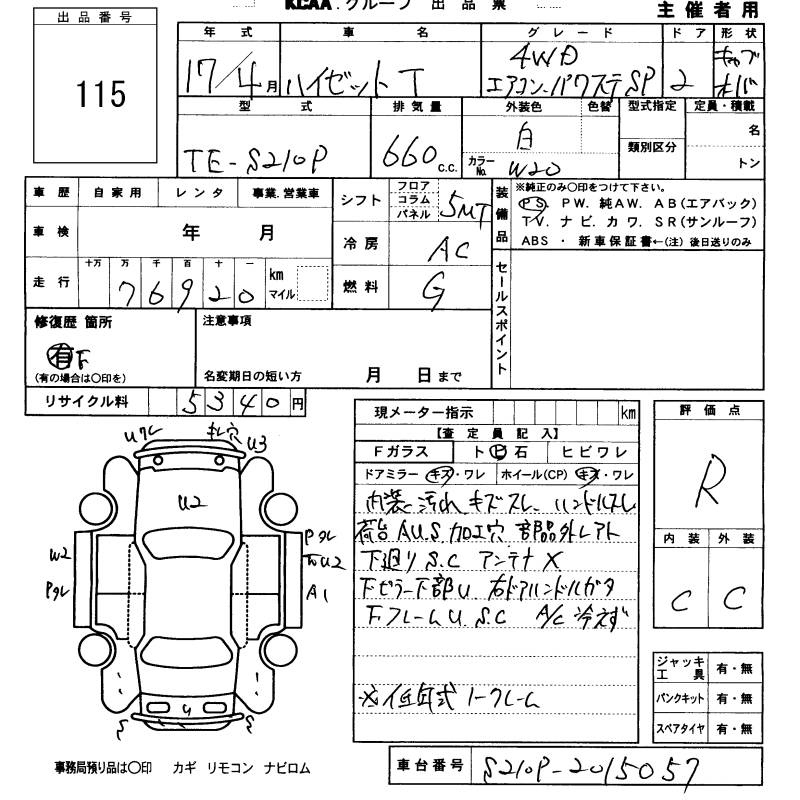 KCAA.グループ 出品票 主催者用
出品番号
115
年式 車名 グレード ドア 形状
17/4月 ハイゼットT 4WD エアコン.パワステSP 2 キャブオーバ
型式 排気量 外装色 色替 型式指定 定員・積載
TE-S210P 660c.c. 白 カラーNo. W20 類別区分 名 トン
車歴 自家用 レンタ 事業.営業車 シフト フロア コラム パネル 5MT
装備品 ※純正のみ〇印をつけて下さい。
PS PW. 純AW. AB(エアバック)
TV. ナビ. カワ. SR(サンルーフ)
ABS ・ 新車保証書←(注) 後日送りのみ
車検 年 月 冷房 AC
走行 十万 万 千 百 十 一 76920 km マイル 燃料 G
セールスポイント
修復歴 箇所 注意事項
有 下
(有の場合は〇印を) 名変期日の短い方 月 日まで
リサイクル料 5340円
現メーター指示 km
評価点
R
【査定員記入】
Fガラス ト ビ 石 ヒビワレ
ドアミラー キズ・ワレ ホイール(CP) キズ・ワレ
内装 汚れ キズ スレ ハンドルスレ
荷台 A.U.S. 加工穴 部品外レアト
下廻りS.C アンテナX
下ピラー下部U. 右ドアハンドルガタ
下フレームU.S.C A/C冷えず
※低年式 1-フレーム
内装 外装
C C
Uワレ キレ穴 U3
U2
W2 Pタレ
Pタレ
下U2
A1
U
ジャッキ工具 有・無
パンクキット 有・無
スペアタイヤ 有・無
事務局預り品は〇印 カギ リモコン ナビロム
車台番号 S210P-2015057